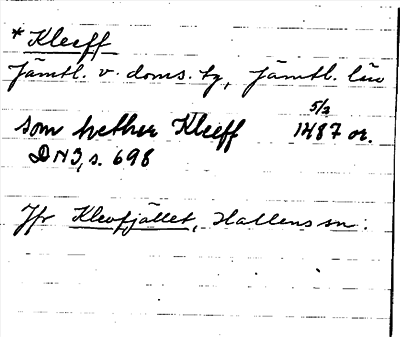 * Kleeff
Jämtl. v. doms. tg, Jämtl. län
5/2
som hether Kleeff 1487 or.
DN3, s. 698
Jfr Klevfjället, Hallens sn.